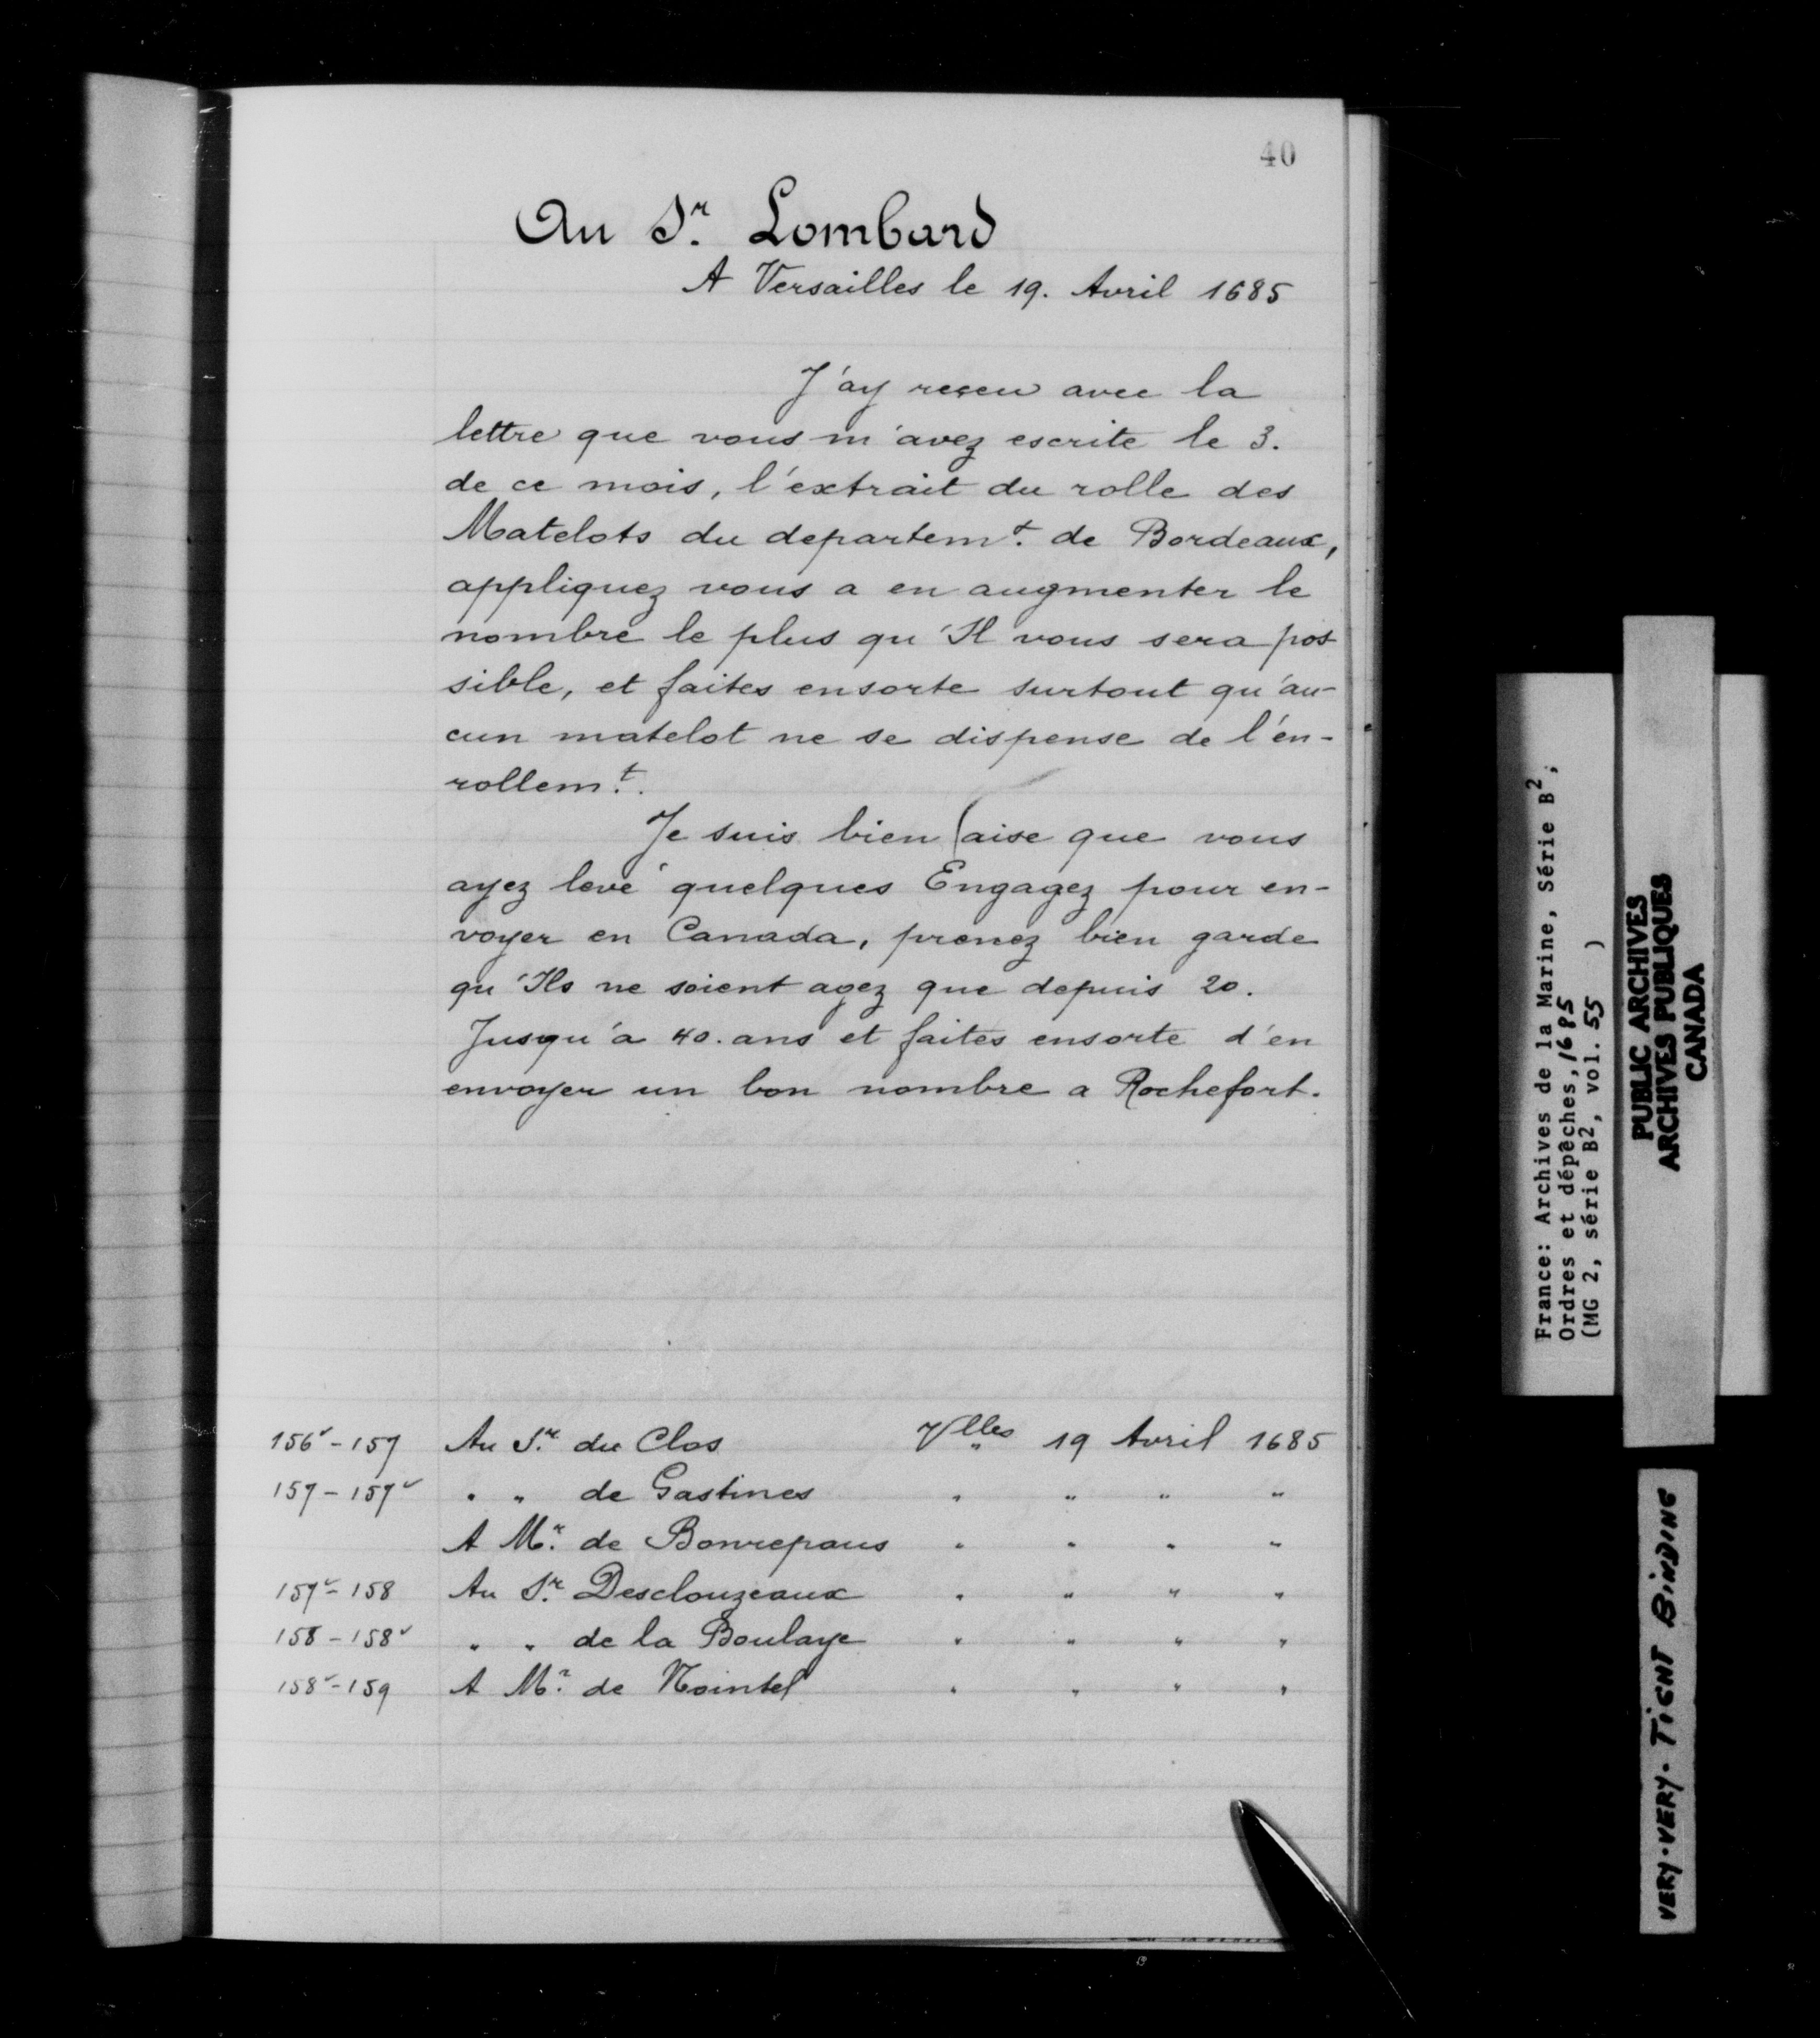 40
Au Sr. Lombard
A Versailles le 19. Avril 1685
J'ay reçeu avec la
lettre que vous m'avez escrite le 3.
de ce mois, l'extrait du rolle des
Matelots du departemt. de Bordeaux,
appliquez vous a en augmenter le
nombre le plus qu'Il vous sera pos
sible, et faites ensorte surtout qu'au-
cun matelot ne se dispense de l'en-
rollemt.
Je suis bien (aise que vous
ayez levé quelques Engagez pour en-
voyer en Canada, prenez bien garde
qu'Ils ne soient agez que depuis 20.
Jusqu'a 40. ans et faites ensorte d'en
envoyer un bon nombre a Rochefort.
156v - 157 Au Sr. du Clos Vlles 19 Avril 1685
157 - 157v " " de Gastines " " " "
A Mr. de Bonrepaus " " " "
157v - 158 Au Sr. Desclouzeaux " " " "
158 - 158v " " de la Boulaye " " " "
158v - 159 A Mr. de Nointel " " " "
France: Archives de la Marine, Série B2,
Ordres et dépêches, 1685
(MG 2, série B2, vol. 55 )
PUBLIC ARCHIVES
ARCHIVES PUBLIQUES
CANADA
VERY-VERY-TIGHT BINDING